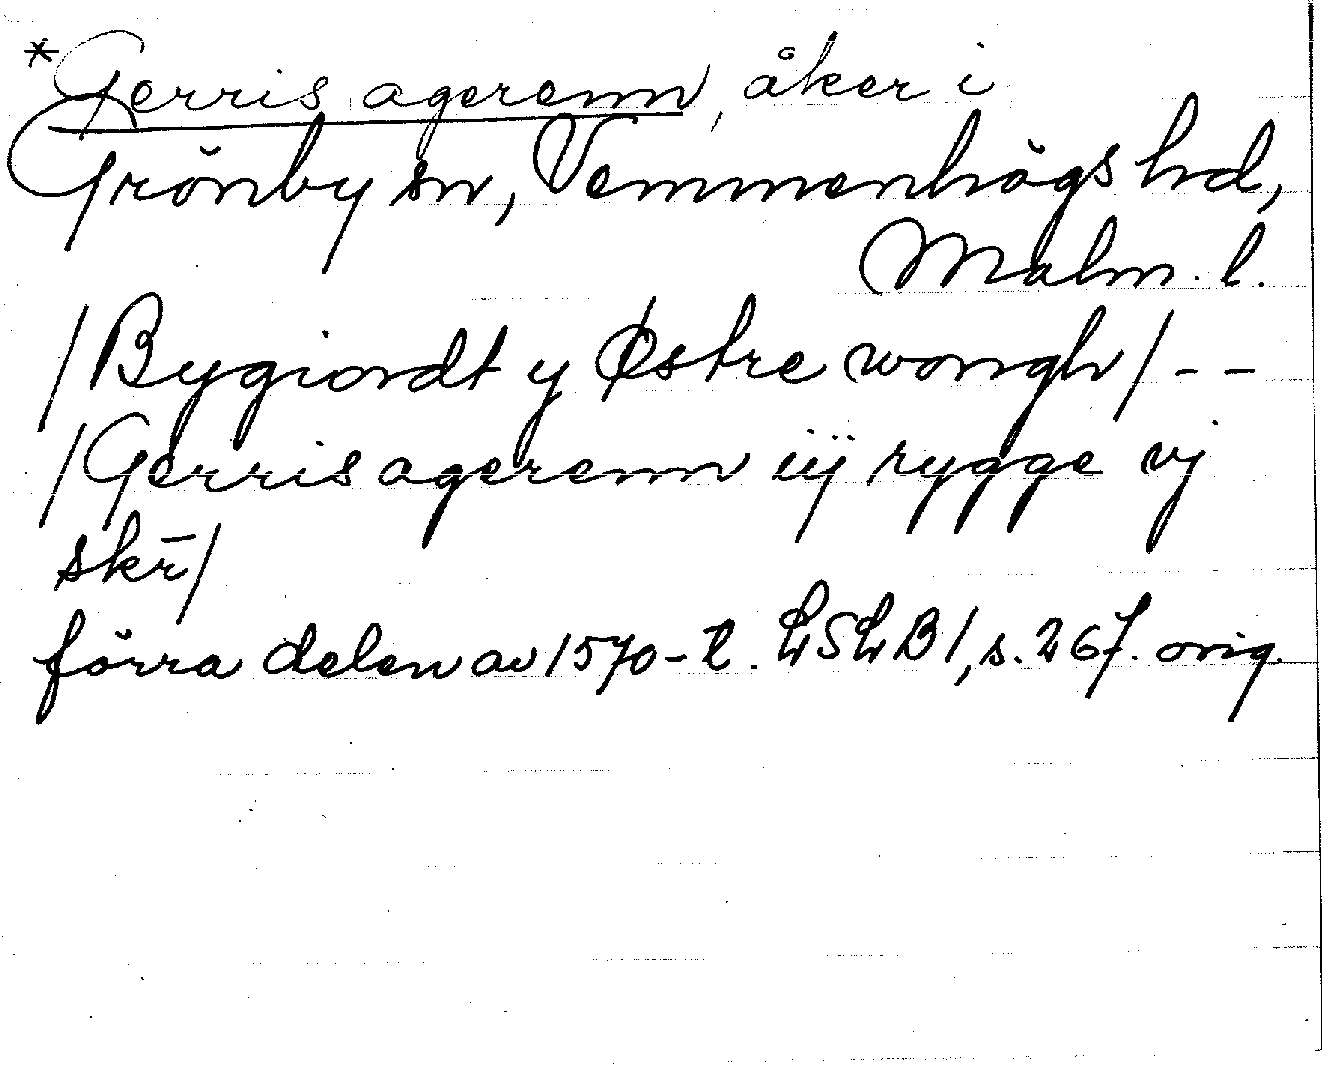 *Gerris agerenn, åker i
Grönby sn, Vemmenhögs hd,
Malm. l.
/Bygiordt y Østre wongh/ - -
/Gerris agerenn iij rygge vj
skr̄/
förra delen av 1570-t. LSLB 1, s. 267. orig.